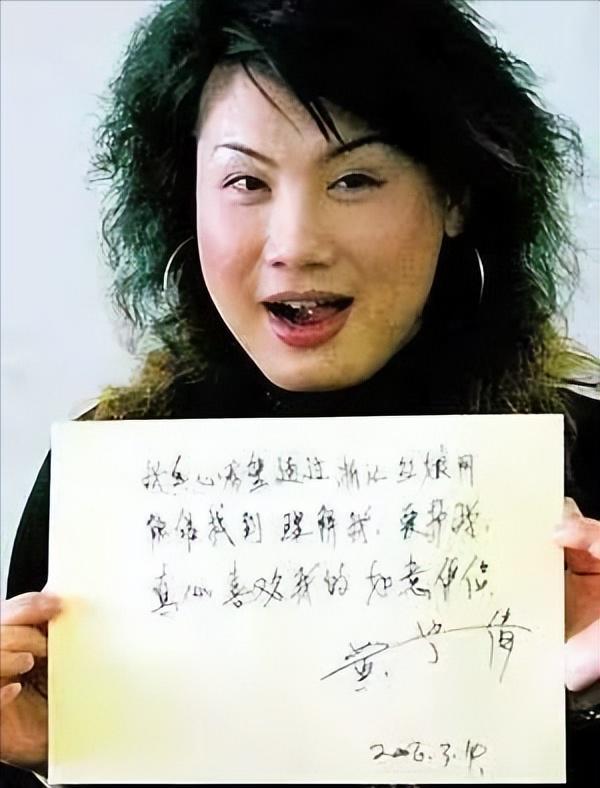 我真心希望通过浙江红娘网
能够找到理解我、爱护我、
真心喜欢我的如意伴侣
黄 倩
2006.3.